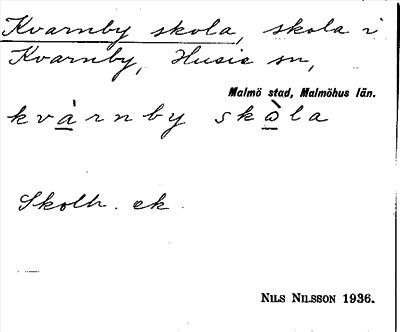 Kvarnby skola, skola i
Kvarnby, Husie sn,
Malmö stad, Malmöhus län.
kvàrnby skòla
Skolh. ek.
NILS NILSSON 1936.